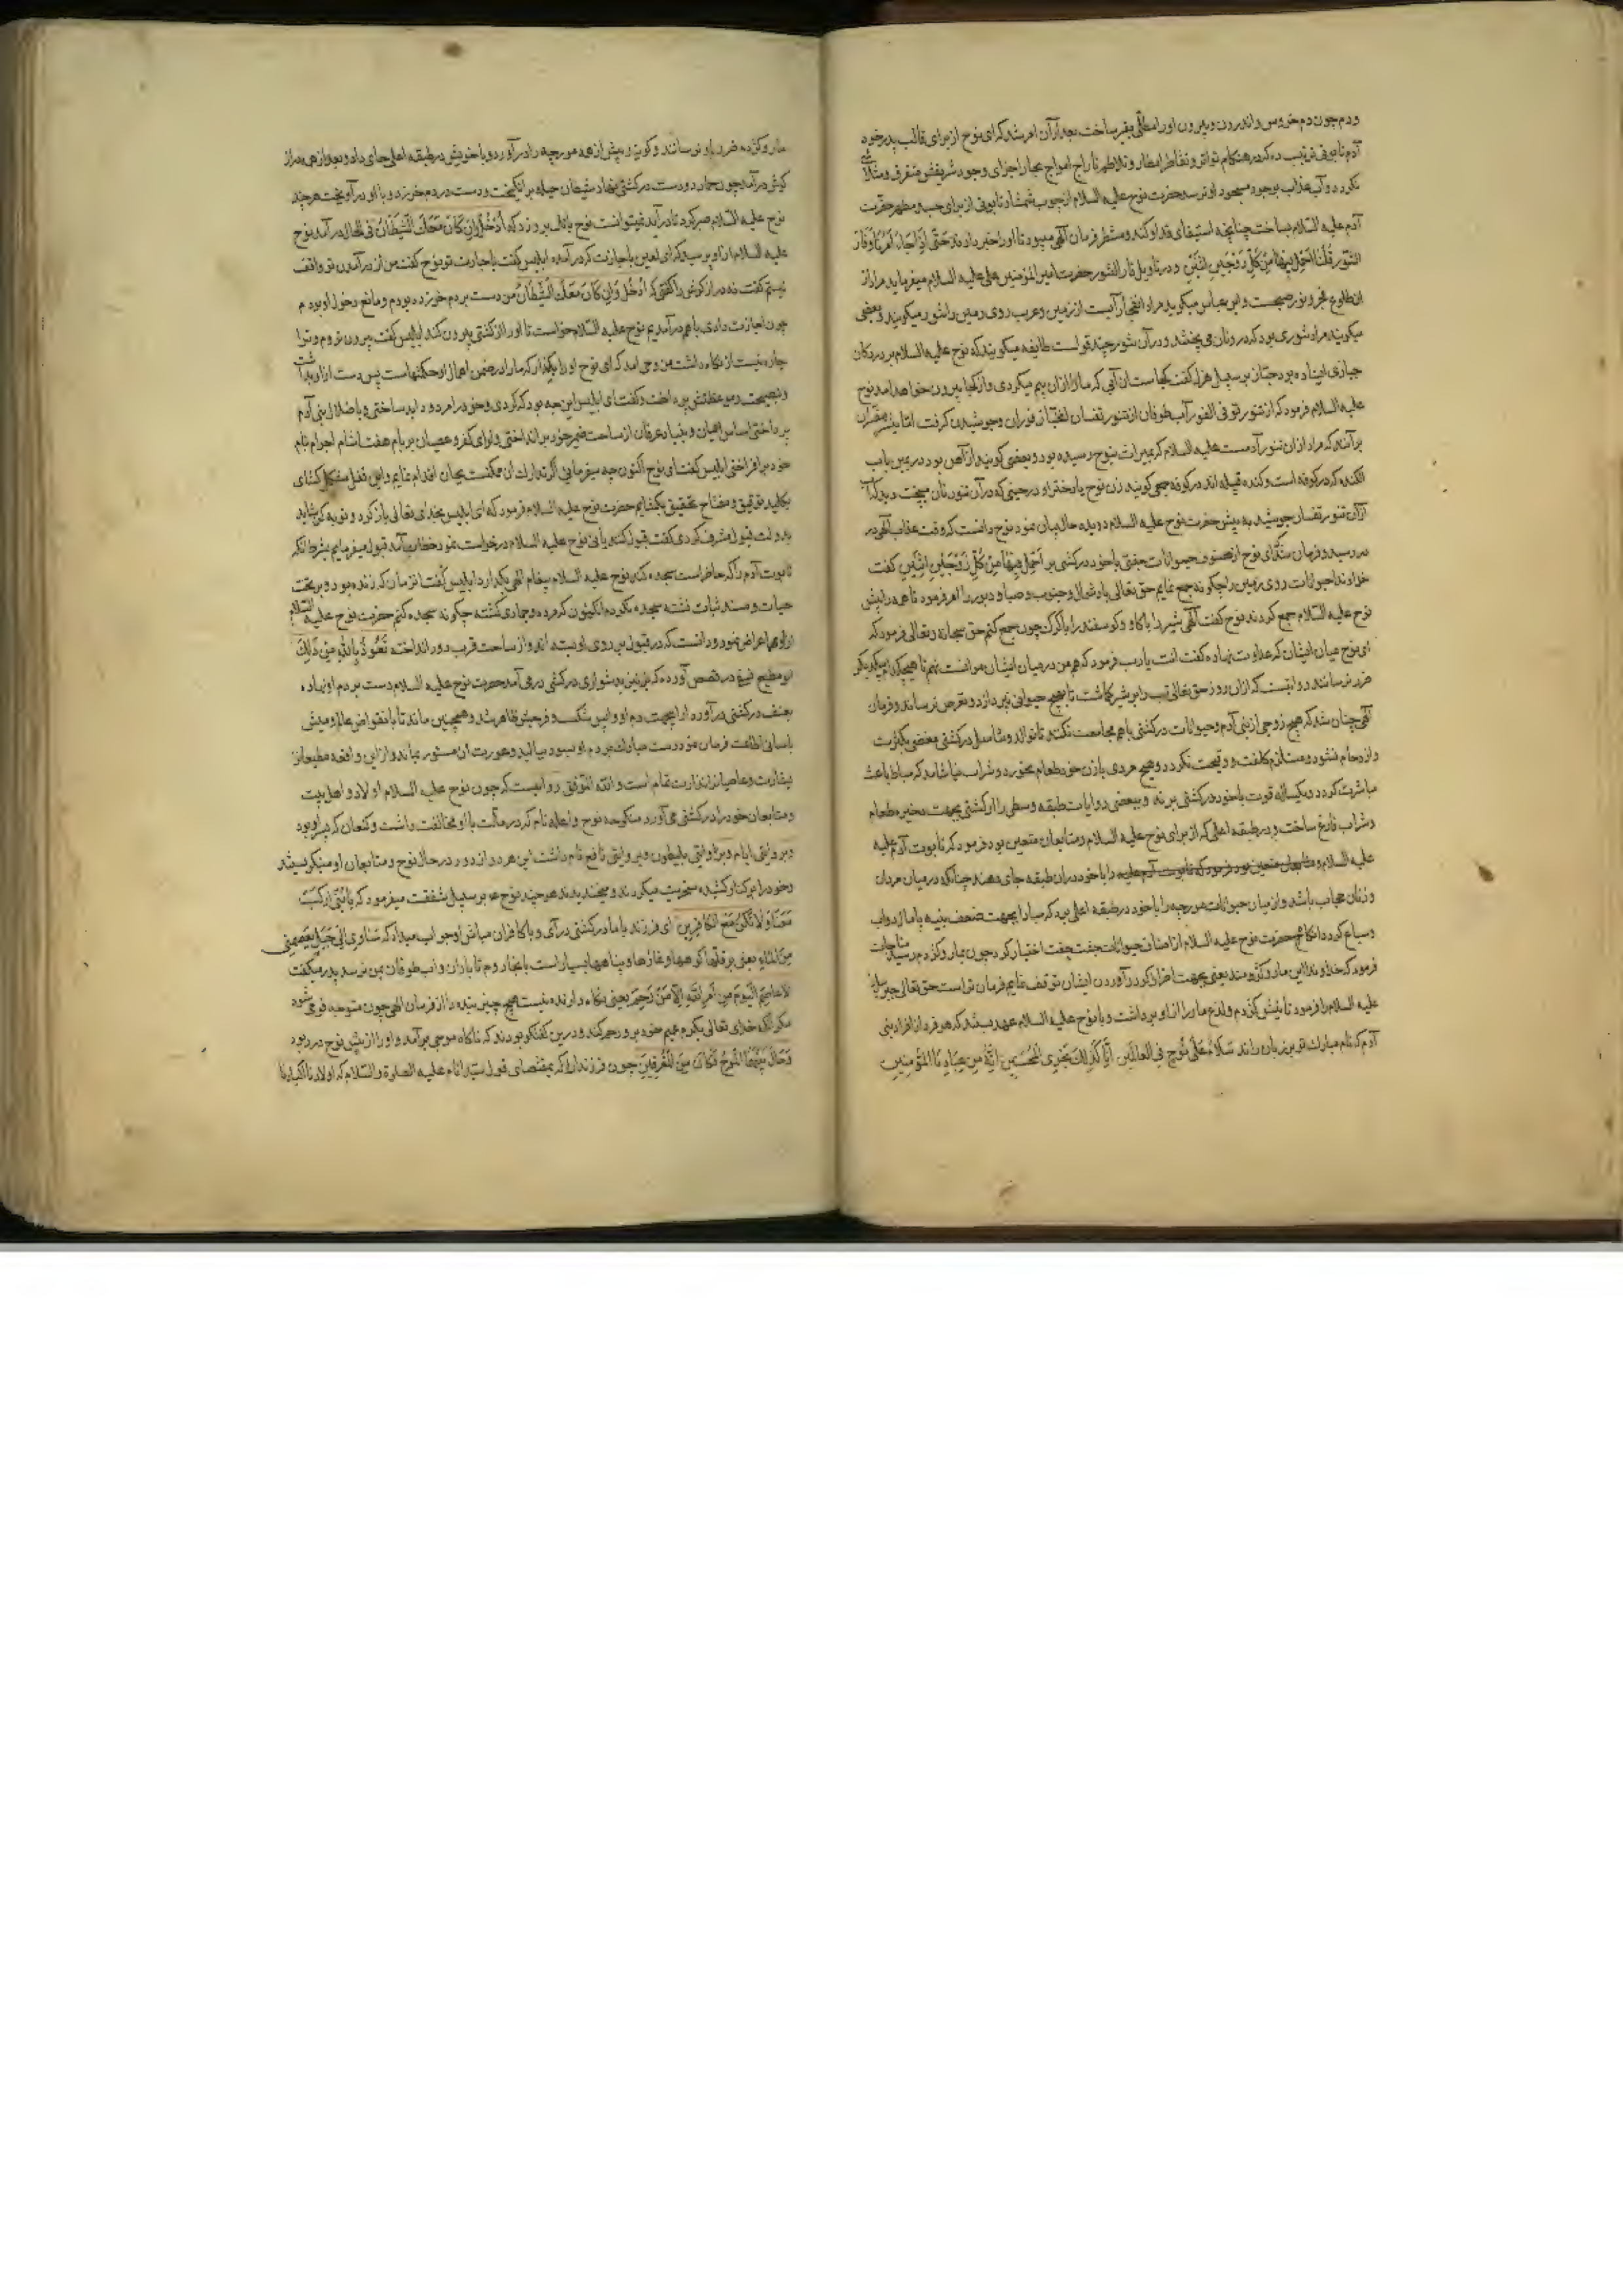 ودم چون دم خروس واندرون وبیرون اورا مطلی بقیر ساخت بعد ازآن امر شد کرای نوح از برای قالب پدر خود
آدم تابوتی ترتیب ده که در هنکام تواتر وتقاطر امطار وتلاطم تاراج امواج بحار اجزای وجود شریفش متفرق ومتلاشی
نکردد وآب عذاب بوجود مسجود او نرسد وحضرت نوح علیه السلام ازچوب شمشاد تابوتی از برای جسد مطهر حضرت
آدم علیه السلام بساخت چنانچه استیفای قد او کند ومنتظر فرمان آلهی میبود تا اورا خبر دادند حَتّی اِذَا جَاءَ اَمْرُنَا وَفَارَ
التَّنّور قُلْنَا احْمِلْ فِیهَا مِنْ كُلٍّ زَوْجَیْنِ اثْنَیْنِ ودر تاویل فار التنور حضرت امیر المؤمنین علی علیه السلام میفرماید مراد از
ان طلوع فجر ونور صبحست وابن عباس میکوید مراد انفجار آبست از زمین وعرب روی زمین را تنور میکویند وبعضی
میکویند مراد تنوری بود که در و نان می پختند ودر آن تنور چند قولست طایفه میکویند که نوح علیه السلام بر در دکان
خبازی ایستاده بود خباز بر سبیل هزل کفت کجاست آن آبی که مارا ازان بیم میکردی واز کجا بیرون خواهد امد نوح
علیه السلام فرمود که از تنور تو فی الفور آب طوفان از تنور تفسان خباز فوران وجوشیدن کرفت اما بیشتر مفسران
برآنند که مراد ازان تنور آدمست علیه السلام که بمیراث بنوح رسیده بود وبعضی کویند از آهن بود در زمین باب
الکنده که در کوفه است وکنده قبیله اند در کوفه جمعی کویند زن نوح یا دختر او در حینی که در آن تنور نان میپخت دید که آب
ازان تنور تفسان جوشید به پیش حضرت نوح علیه السلام دویده حال بیان نمود نوح دانست که وقت عذاب آلهی در
رسید وفرمان شد که ای نوح از صنوف حیوانات جفتی با خود در کشتی بر اَحْمِلْ فِیهَا مِنْ كُلٍّ زَوْجَیْنِ اثْنَیْنِ کفت
خداوندا حیوانات روی زمین را چکونه جمع نمایم حق تعالی باد شمال وجنوب وصبا ودبور را امر فرمود تا همه را پیش
نوح علیه السلام جمع کردند نوح کفت آلهی شیر را با کاو وکوسفند را با کرک چون جمع کنم حق سبحانه وتعالی فرمود که
ای نوح میان ایشان که عداوت نهاده کفت انت یا رب فرمود که هم من در میان ایشان موانست نهم تا هیچکدام بیکدیکر
ضرر نرسانند روایتست که ازان روز حق تعالی تب را بر شیر کماشت تا بهیچ حیوانی نپردازد وتعرض نرساند وفرمان
آلهی چنان شد که هیچ زوجی از بنی آدم وحیوانات در کشتی با هم مجامعت نکنند تا توالد وتناسل در کشتی مفضی بکثرت
وازدحام نشود ومستلزم کلفت و وقیحت نکردد وهیچ مردی با زن خود طعام نخورد وشراب نیاشامد که مبادا باعث
مباشرت کردد ویکساله قوت با خود در کشتی برند وببعضی روایات طبقه وسطی را از کشتی بجهت ذخیره طعام
وشراب فارغ ساخت ودر طبقه اعلی که از برای نوح علیه السلام ومتابعان متعین بود فرمود که تابوت آدم علیه
علیه السلام را با خود دران طبقه جای دهند چنانکه در میان مردان
وزنان حجاب باشد واز میان حیوانات مورچه را با خود در طبقه اعلی برد که مبادا بجهت ضعف بنیه پامال دواب
وسباع کردد انکاه حضرت نوح علیه السلام از اصناف حیوانات جفت جفت اختیار کرد چون بمار وکژدم رسید مناجات
فرمود که خداوندا این مار وکژدمند یعنی بجهت اضرار کرد در آوردن ایشان توقف نمایم فرمان تراست حق تعالی جبرئیل
علیه السلام را فرمود تا نیش کژدم ولدغ مار را از او برداشت وبا نوح علیه السلام عهد بستند که هر فرد از افراد بنی
آدم که نام مبارک تو بر زبان راند سَلَامٌ عَلَی نُوحٍ فِی الْعَالَمِینَ اِنَّا كَذَلِكَ نَجْزِی الْمُحْسِنِینَ اِنَّهُ مِنْ عِبَادِنَا الْمُؤْمِنِینَ
مار وکژدم ضرر باو نرسانند وکویند پیش از همه مورچه را در آورد وبا خویش در طبقه اعلی جای داد وبعد از همه دراز
کوش در آمد چون حمار دو دست در کشتی نهاد شیطان حیله بر انکیخت ودست در دم خر زد وبا او در آویخت هر چند
نوح علیه السلام صبر کرد تا در آید نمیتوانست نوح بانک برو زد که اُدْخُلْ وَاِنْ كَانَ مَعَكَ الشَّیْطَانُ فی الحال در آمد نوح
علیه السلام از او پرسید که ای لعین باجازت که در آمده ابلیس کفت باجازت تو نوح کفت من از در آمدن تو واقف
نیستم کفت نه دراز کوش را کفتی که اُدْخُلْ وَاِنْ كَانَ مَعَكَ الشَّیْطَانُ من دست بر دم خر زده بودم ومانع دخول او بودم
چون اجازت دادی با هم در آمدیم نوح علیه السلام خواست تا اورا از کشتی بیرون کند ابلیس کفت بیرون نروم وترا
چاره نیست از نکاه داشت من وحی امد که ای نوح اورا بکذار که مارا در ضمن اهمال او حکمتهاست پس دست از او بداشت
وبنصیحت وموعظتش پرداخت وکفت ای ابلیس این چه بود که کردی وخود را مردود ابد ساختی وباضلال بنی آدم
پرداختی اساس ایمان وبنیاد عرفان از ساحت ضمیر خود بر انداختی ولوای کفر وعصیان بر بام هفت اشام اجرام بنام
خود بر افراختی ابلیس کفت ای نوح اکنون چه میفرمایی اکر تدارک آن ممکنست بجان اقدام نمایم واین قفل مشکل کشای
بکلید توفیق ومفتاح تحقیق بکشایم حضرت نوح علیه السلام فرمود که ای ابلیس بخدای تعالی باز کرد وتوبه کن شاید
بدولت قبول مشرف کردی کفت قبول کند یا نی نوح علیه السلام درخواست نمود خطاب آمد قبول میفرمایم بشرط انکه
تابوت آدم را که حاضر است سجده کند نوح علیه السلام پیغام آلهی بکذارد ابلیس کفت انزمان که زنده بود وبر تخت
حیات ومسند ثبات نشسته سجده نکردم اکنون که مرده وجمادی کشته چکونه سجده کنم حضرت نوح علیه السلام
ازو هم اعراض نمود ودانست که در قبول بر روی او بسته اند واز ساحت قرب دور انداخته نَعُوذُ بِاللهِ مِنْ ذَلِكَ
ابو مطیع نسفی در قصص آورده که بز نیز بدشواری در کشتی در می آمد حضرت نوح علیه السلام دست بر دم او نهاده
بعنف در کشتی در آورد ازینجهت دم او واپس شکست وفرجش ظاهر شد وهمچنین ماند تا بانقراض عالم ومیش
باسانی اطاعت فرمان نمود دست مبارک بر دم او سود دنبالید وعورت ان مستور بماند واز این واقعه مطیعانرا
بشارت وعاصیانرا نذارت تمام است والله الموفق روایست که چون نوح علیه السلام اولاد واهل بیت
ومتابعان خود را در کشتی می آورد منکوحه نوح واعله نام که در ملت با او مخالفت داشت وکنعان که پسر او بود
وبروایتی ایام وبروایتی بلیطون وبروایتی نافع نام داشت این هر دو از دور در حال نوح ومتابعان او مینکریستند
وخود را بر کنار کشیده سخریت میکردند ومیخندیدند هر چند نوح بر سبیل شفقت میفرمود که یَا بُنَیَّ ارْكَبْ
مَعَنَا وَلَا تَكُنْ مَعَ الْكَافِرِینَ ای فرزند با ما در کشتی در آی وبا کافران مباش او جواب میداد که سَآوِی اِلَی جَبَلٍ یَعْصِمُنِی
مِنَ الْمَاءِ یعنی بر قلها کوهها وغارها وپناهها بسیار است بانجا روم تا باران واب طوفان بمن نرسد پدر میکفت
لَا عَاصِمَ الْیَوْمَ مِنْ اَمْرِ اللهِ اِلَّا مَنْ رَحِمَ یعنی نکاه دارنده نیست هیچ چیز بنده را از فرمان الهی چون متوجه قومی شود
مکر آنکه خدای تعالی بکرم عمیم خود برو رحم کند ودرین کفتکو بودند که ناکاه موجی برآمد واورا از پیش نوح در ربود
وَحَالَ بَیْنَهُمَا الْمَوْجُ فَكَانَ مِنَ الْمُغْرَقِینَ چون فرزندانرا که بمقتضای قول سید انام علیه الصلوة والسلام که اولادنا اکبادنا